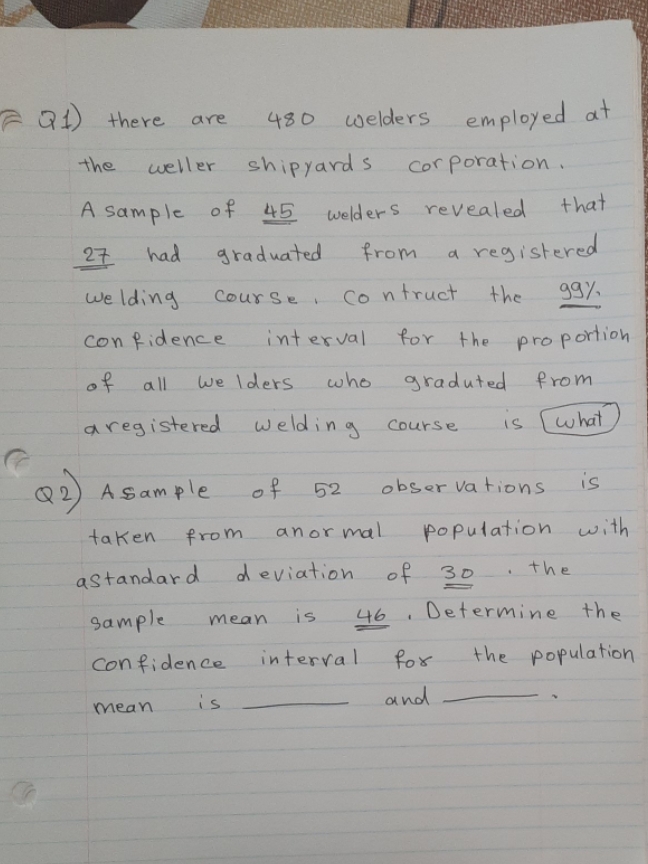 Q1) there are 480 welders employed at
the weller shipyards corporation.
A sample of 45 welders revealed that
27 had graduated from a registered
welding course. Contruct the 99%
confidence interval for the proportion
of all welders who graduted from
a registered welding course is what
Q2) A sample of 52 observations is
taken from a normal population with
a standard deviation of 30. the
sample mean is 46. Determine the
confidence interval for the population
mean is ______ and ______.